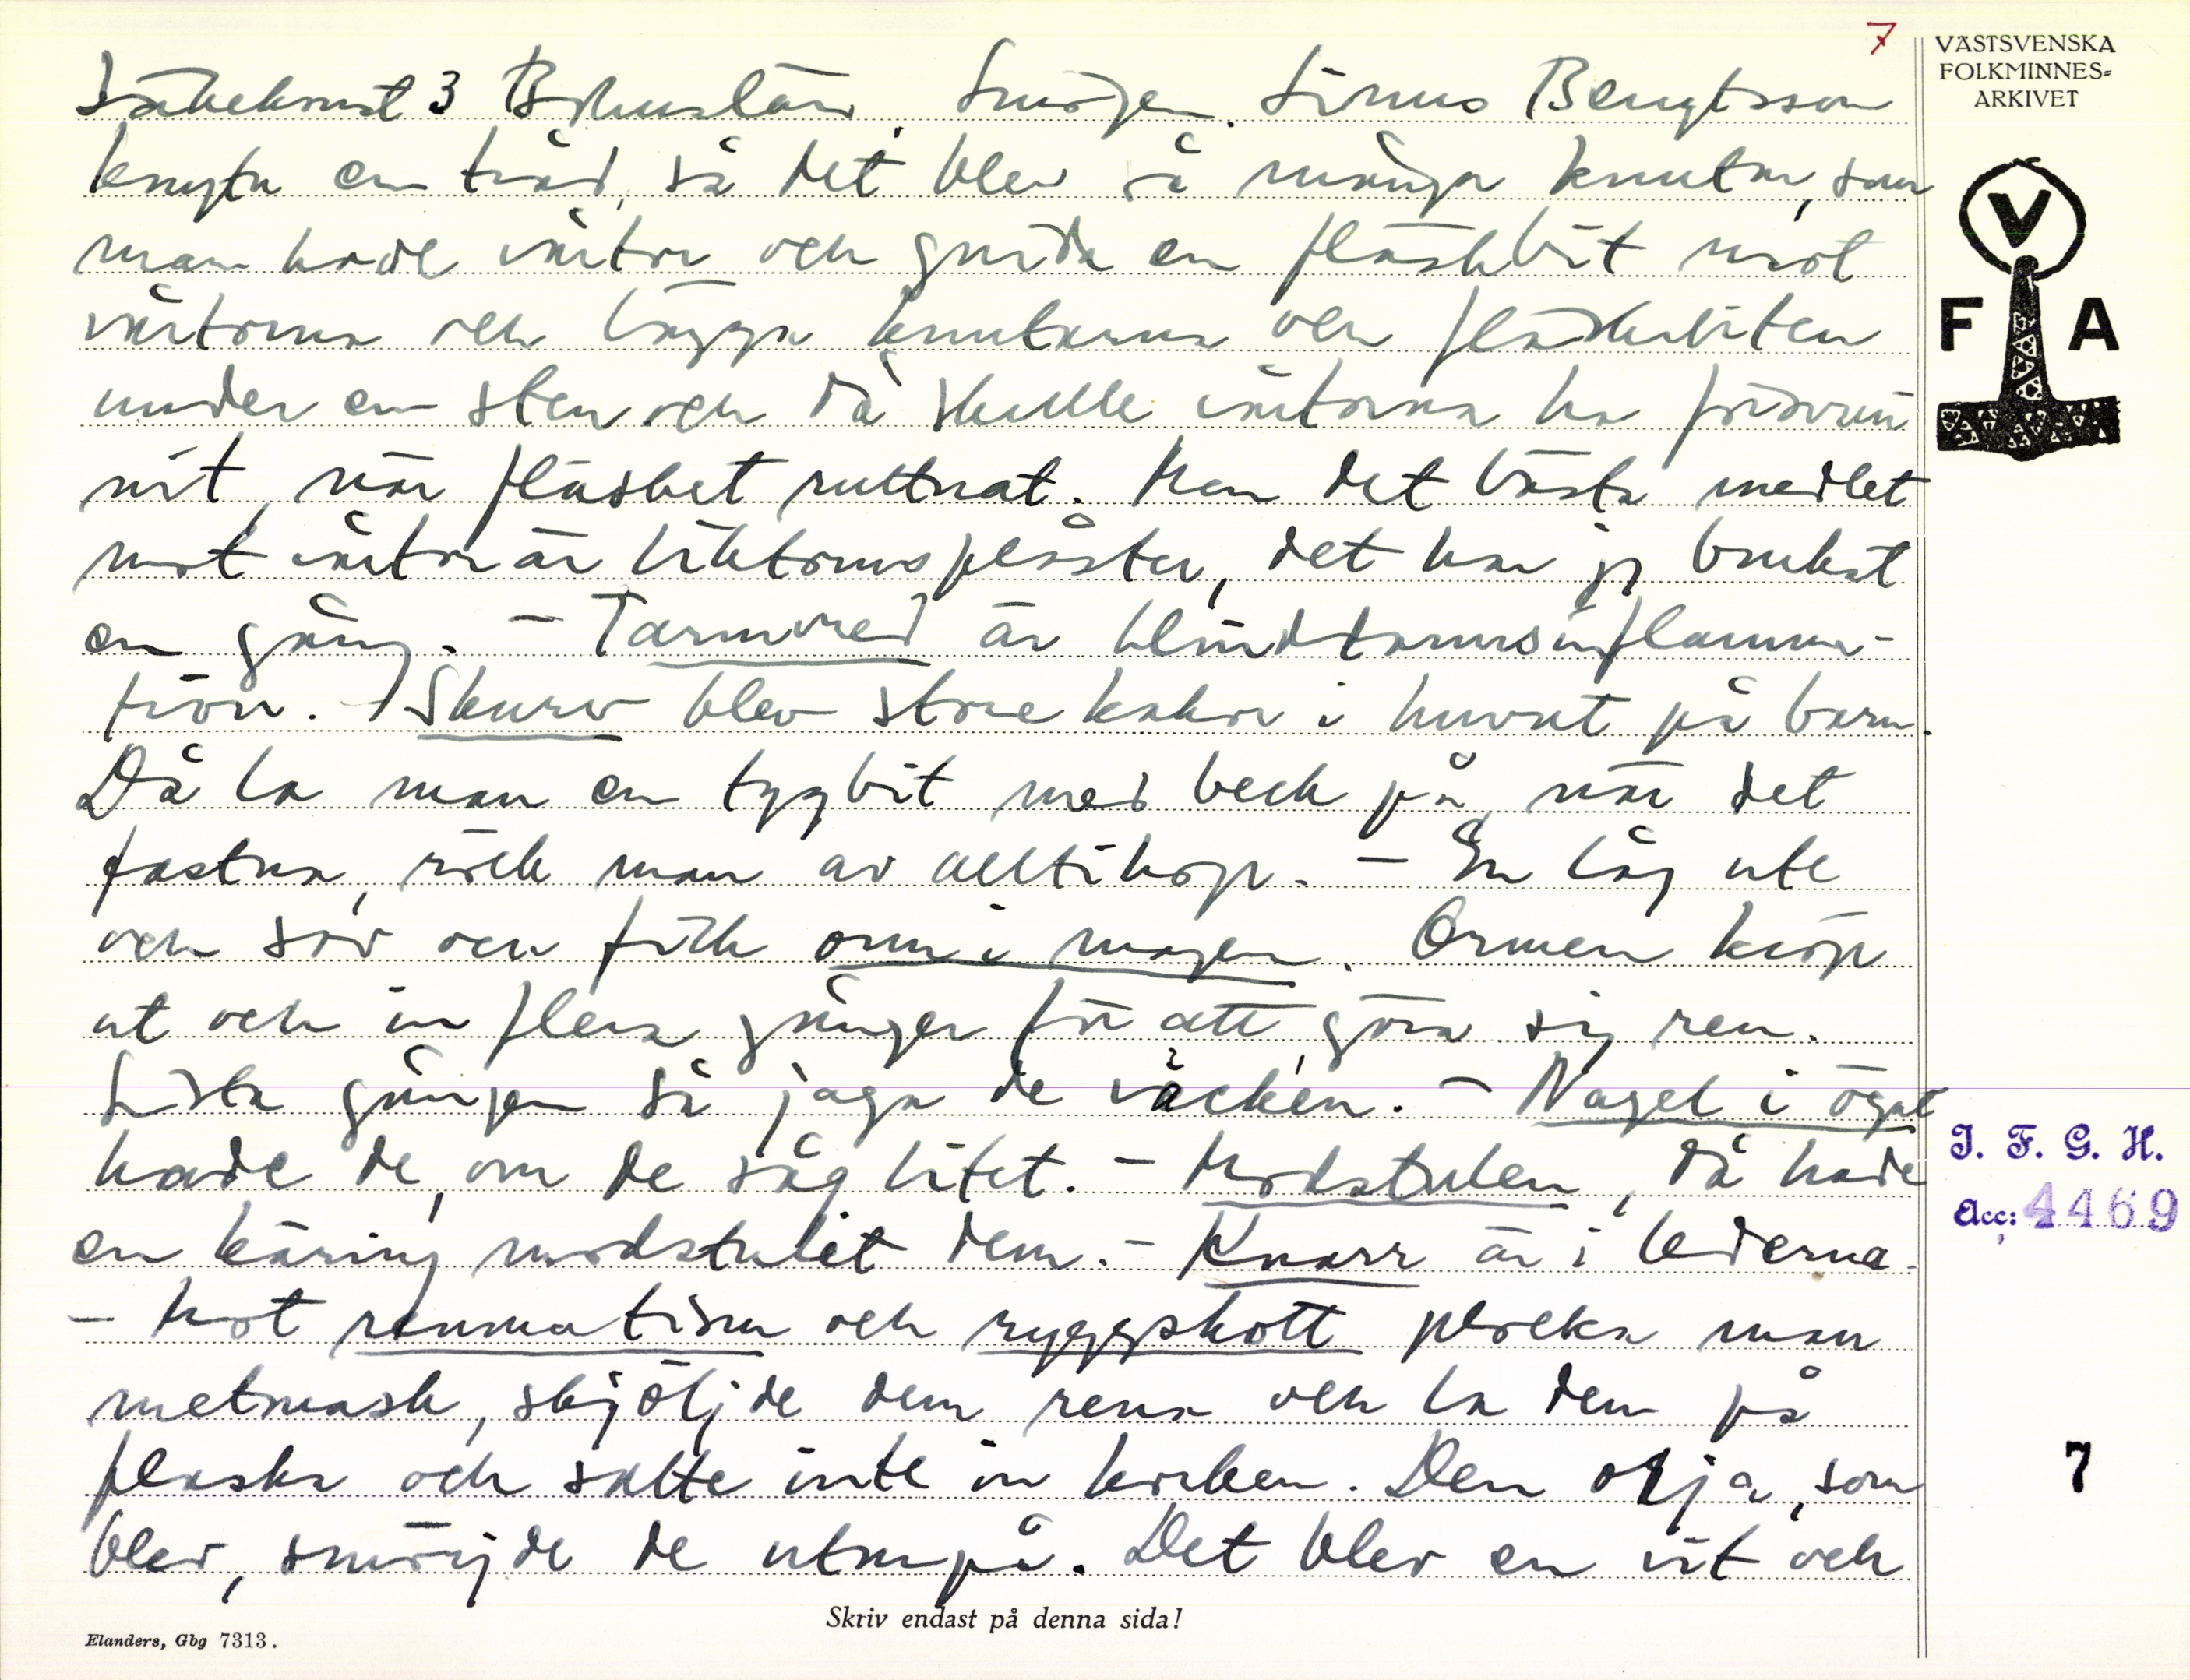 7
VÄSTSVENSKA
FOLKMINNES-
ARKIVET
Läkekonst 3 Bohuslän. Smögen. Linus Bengtsson
knyta en tråd, så det blev så många knutar, som
man hade vårtor och gnida en fläskbit mot
vårtorna och lägga knutarna och fläskbiten
under en sten och då skulle vårtorna ha försvun
nit, när fläsket ruttnat. Men det bästa medlet
mot vårtor är liktornsplåster, det har jg brukat
en gång. - Tarmvred är blindtarmsinflamma-
tion. - Skurv blev stora kakor i huvut på barn.
Då la man en tygbit med beck på, när det
fastna, röck man av alltihop. - En låg ute
och sov och fick orm i magen. Ormen kröp
ut och in flera gånger för att göra sig ren.
Sista gången så jaga de väcken. - Nagel i ögat
hade de, om de såg litet. - Modstulen, då hade
en käring modstulit dem. - Knarr är i lederna.
- Mot reumatism och ryggskott plocka man
metmask, skjöljde dem rena och la dem på
flaska och satte inte in korken. Den olja, som
blev, smörjde de utanpå. Det blev en vit och
V
F A
I. F. G. H.
Acc: 4469
7
Skriv endast på denna sida!
Elanders, Gbg 7313.